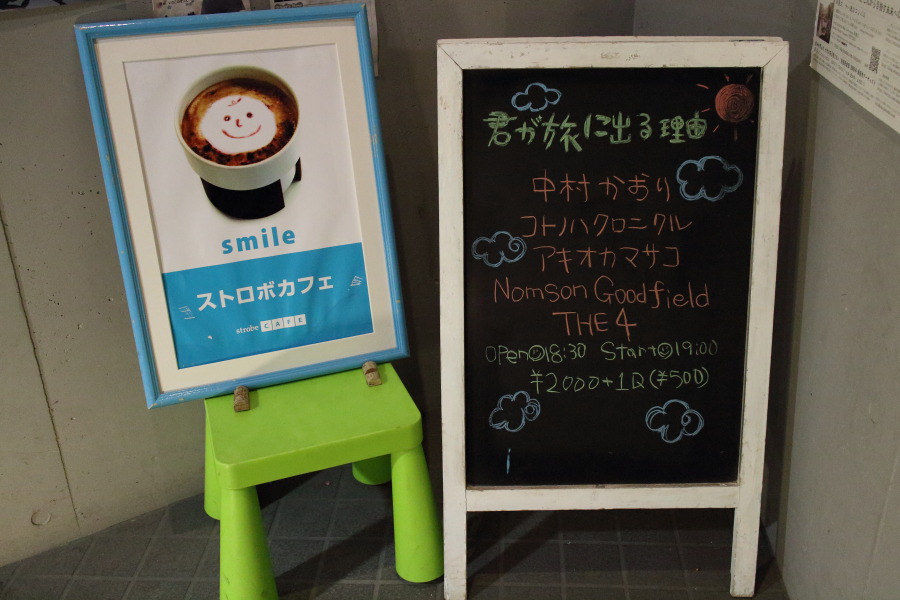 smile
ストロボカフェ
strobe CAFE
君が旅に出る理由
中村かおり
コトノハクロニクル
アキオカマサコ
Nomson Goodfield
THE 4
open 18:30 Start 19:00
¥2000+1D(¥500)